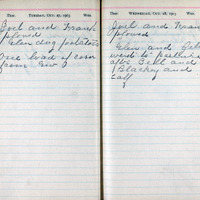 Ther. TUESDAY, OCT. 27, 1903 Wea.
Joel and Frank
plowed
Glen dug potatoes
one load of corn
from
Ther. WEDNESDAY, OCT. 28, 1903 Wea.
Joel and Frank
plowed
Glen and
went to
after Bell and
Blackey and
calf